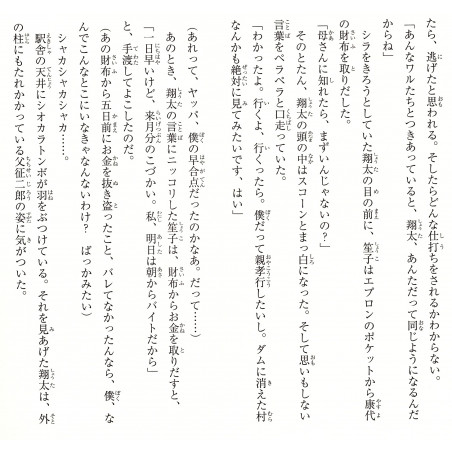 たら、逃げたと思われる。そしたらどんな仕打ちをされるかわからない。
「あんなワルたちとつきあっていると、翔太、あんただって同じようになるんだ
からね」
シラをきろうとしていた翔太の目の前に、笙子はエプロンのポケットから康代
の財布を取りだした。
「母さんに知れたら、まずいんじゃないの？」
そのとたん、翔太の頭の中はスコーンとまっ白になった。そして思いもしない
言葉をペラペラと口走っていた。
「わかったよ。行くよ、行くったら。僕だって親孝行したいし。ダムに消えた村
なんかも絶対に見てみたいです、はい」
（あれって、ヤッパ、僕の早合点だったのかなあ。だって……）
あのとき、翔太の言葉にニッコリした笙子は、財布からお金を取りだすと、
「一日早いけど、来月分のこづかい。私、明日は朝からバイトだから」
と、手渡してよこしたのだ。
（あの財布から五日前にお金を抜き盗ったこと、バレてなかったんなら、僕、な
んでこんなとこにいなきゃなんないわけ？　ばっかみたい）
シャカシャカシャカ……。
駅舎の天井にシオカラトンボが羽をぶつけている。それを見あげた翔太は、外
の柱にもたれかかっている父征二郎の姿に気がついた。